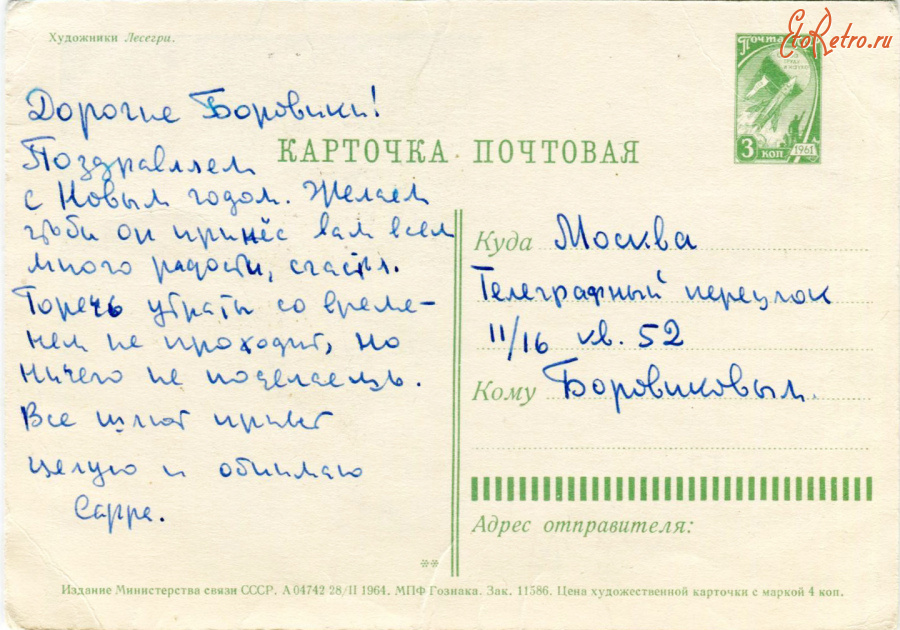 Художники Лесегри.
Почта
EtoRetro.ru
3 коп 1961
КАРТОЧКА ПОЧТОВАЯ
Дорогие Боровики!
Поздравляем
с Новым годом. Желаем
чтобы он принёс вам всем
много радости, счастья.
Горечь утраты со време-
нем не проходит, но
ничего не поделаешь.
Все шлют привет
целую и обнимаю
Сарра.
Куда Москва
Телеграфный переулок
11/16 кв. 52
Кому Боровиковым.
Адрес отправителя:
Издание Министерства связи СССР. А 04742 28/II 1964. МПФ Гознака. Зак. 11586. Цена художественной карточки с маркой 4 коп.